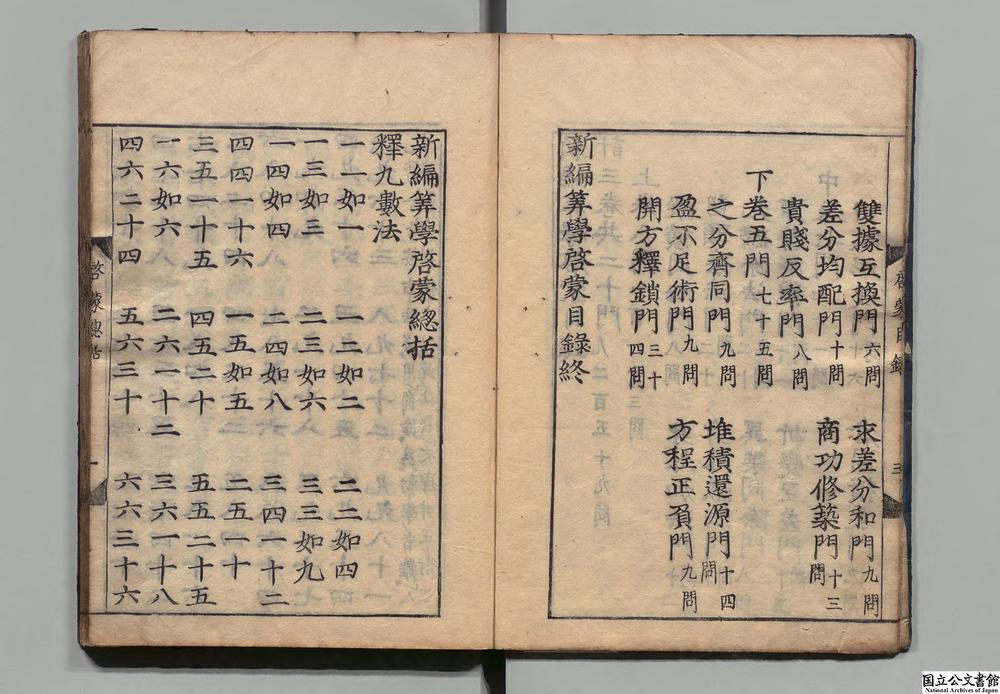 雙據互換門六問 求差分和門九問
差分均配門十問 商功修築門十三問
貴賤反率門八問
下卷五門七十五問
之分齊同門九問 堆積還源門十四問
盈不足術門九問 方程正負門九問
開方釋鎖門三十四問
新編筭學啓蒙目錄終
啓蒙目錄 三
新編筭學啓蒙總括
釋九數法
一一如一 一二如二 二二如四
一三如三 二三如六 三三如九
一四如四 二四如八 三四一十二
四四一十六 一五如五 二五一十
三五一十五 四五二十 五五二十五
一六如六 二六一十二 三六一十八
四六二十四 五六三十 六六三十六
啓蒙總括 一
国立公文書館
National Archives of Japan